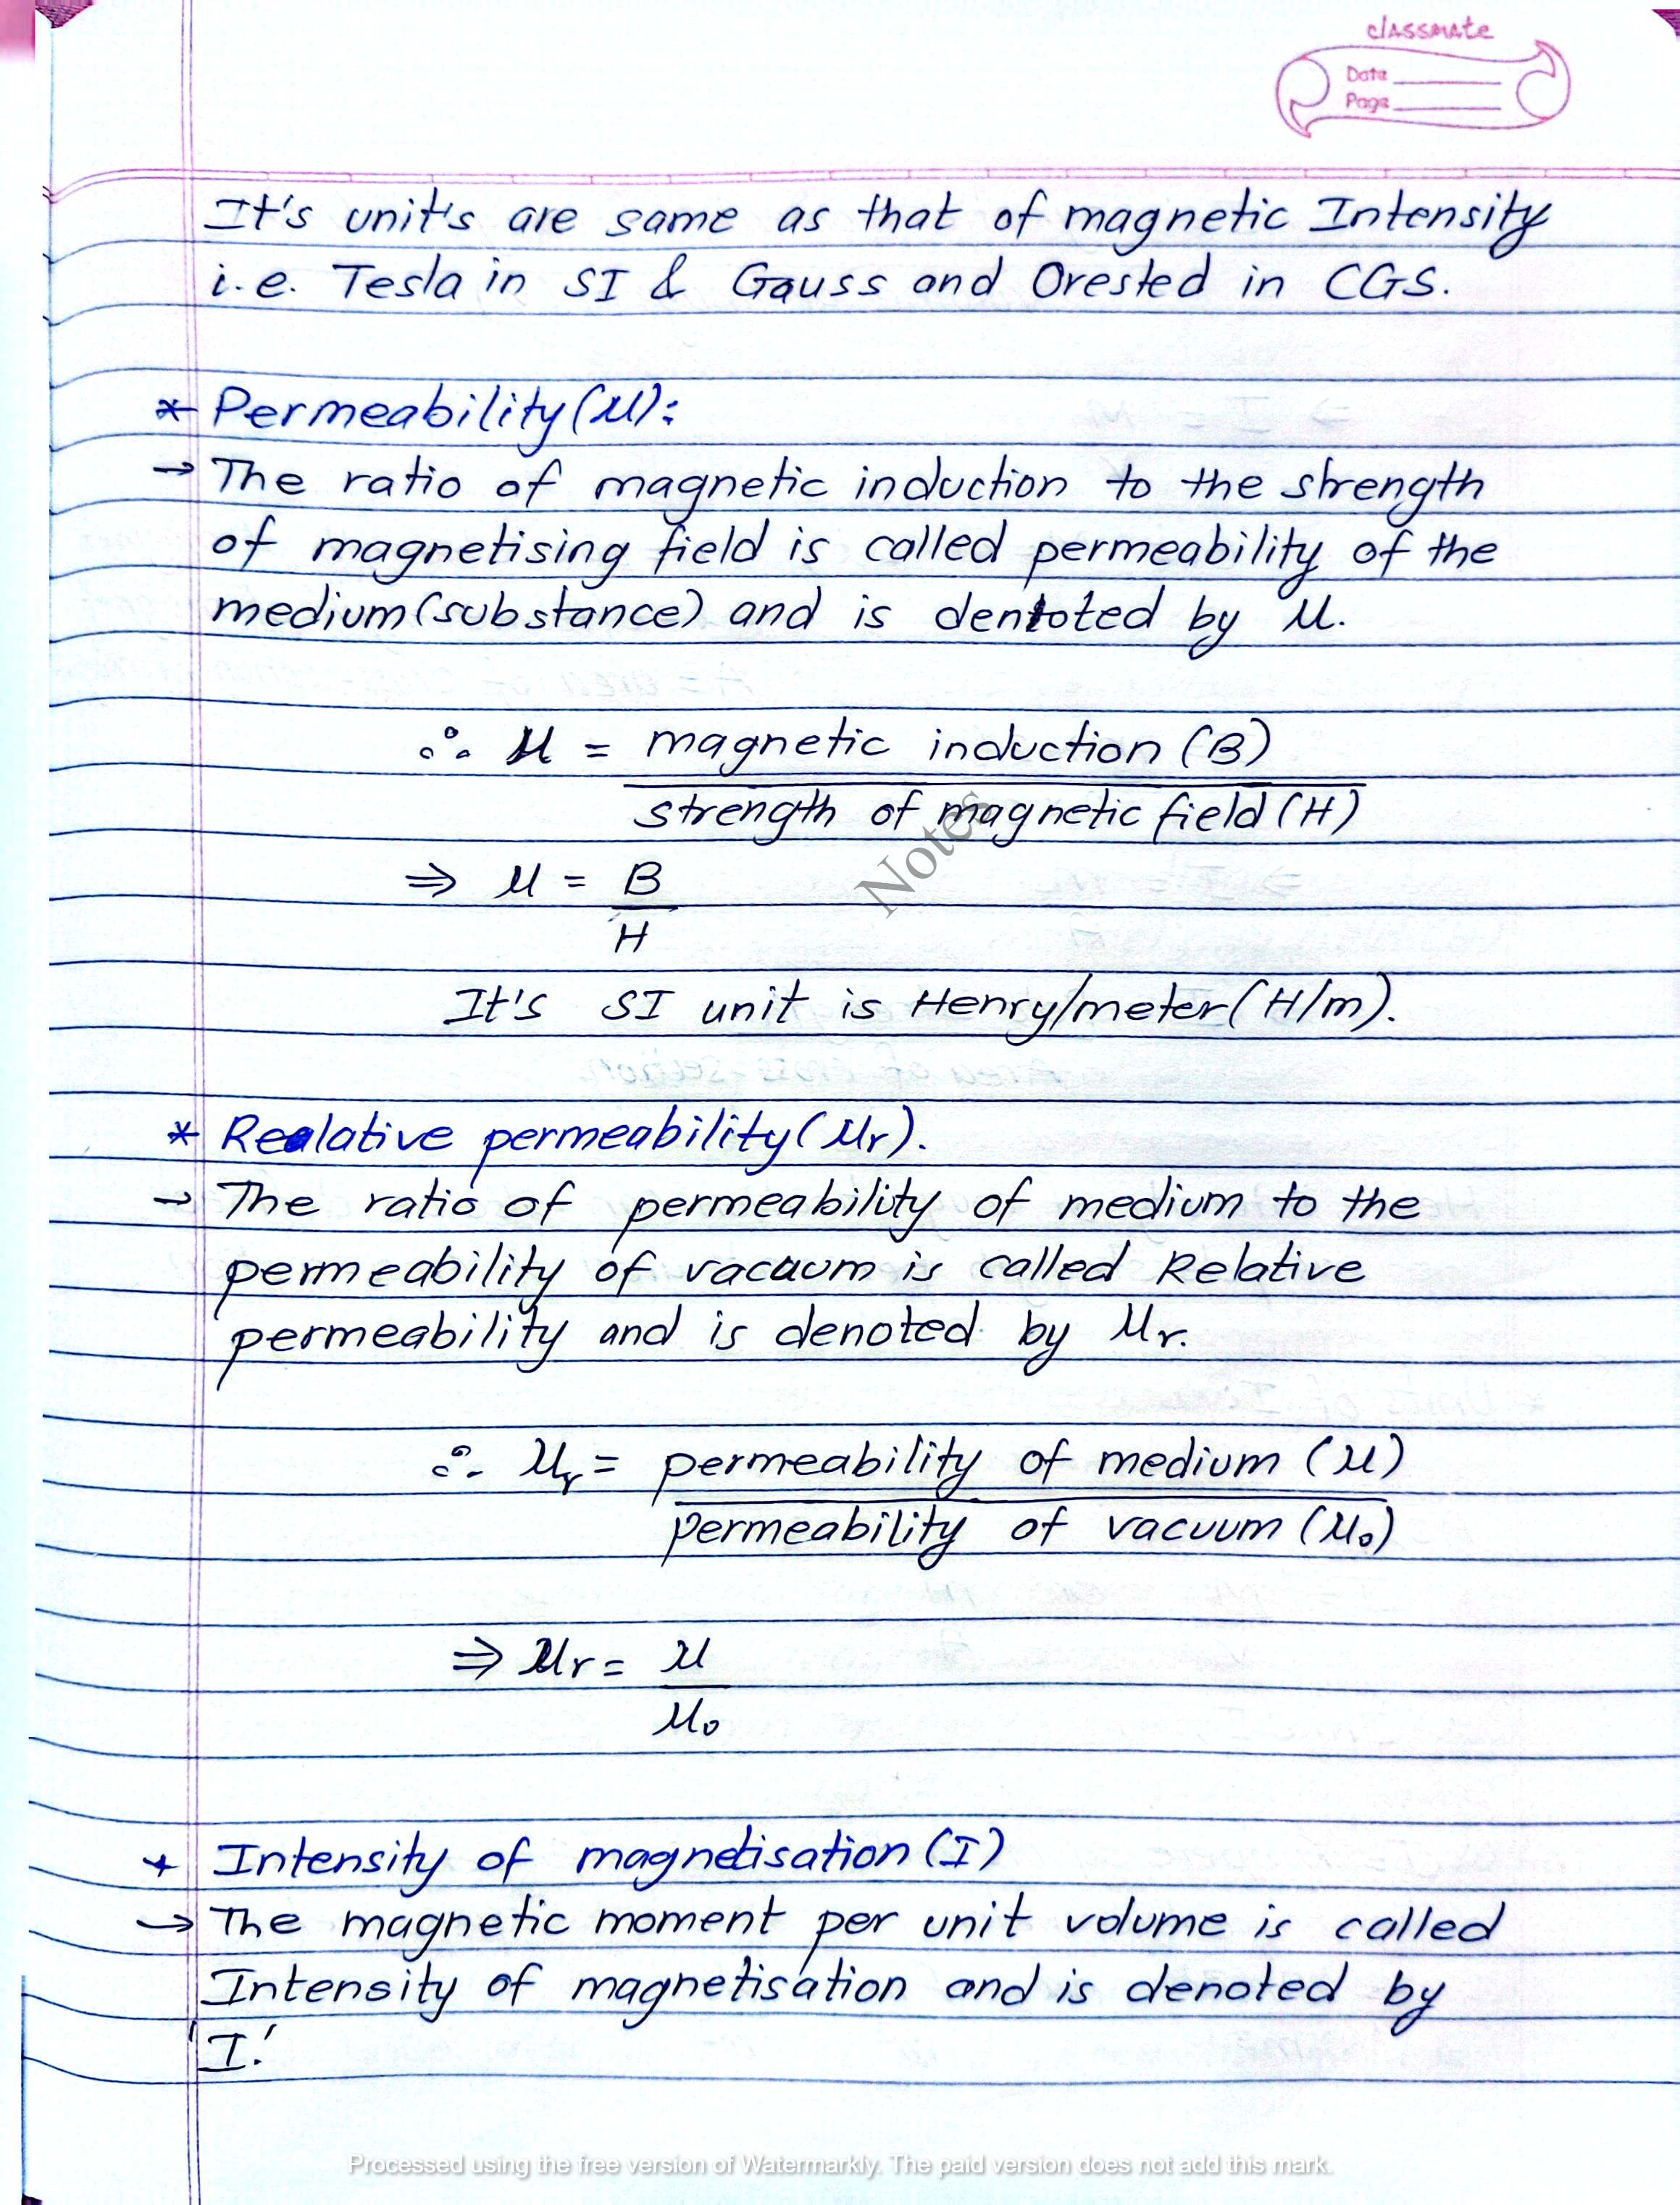 classmate
Date
Page
It's unit's are same as that of magnetic Intensity
i.e. Tesla in SI & Gauss and Orested in CGS.
* Permeability (μ):
→ The ratio of magnetic induction to the strength
of magnetising field is called permeability of the
medium (substance) and is dentoted by μ.
∴ μ = magnetic induction (B)
strength of magnetic field (H)
⇒ μ = B
H
It's SI unit is Henry/meter (H/m).
* Realative permeability (μr).
→ The ratio of permeability of medium to the
permeability of vacuum is called Relative
permeability and is denoted by μr.
∴ μr = permeability of medium (μ)
permeability of vacuum (μ₀)
⇒ μr = μ
μ₀
* Intensity of magnetisation (I)
→ The magnetic moment per unit volume is called
Intensity of magnetisation and is denoted by
'I.'
Notes
Processed using the free version of Watermarkly. The paid version does not add this mark.